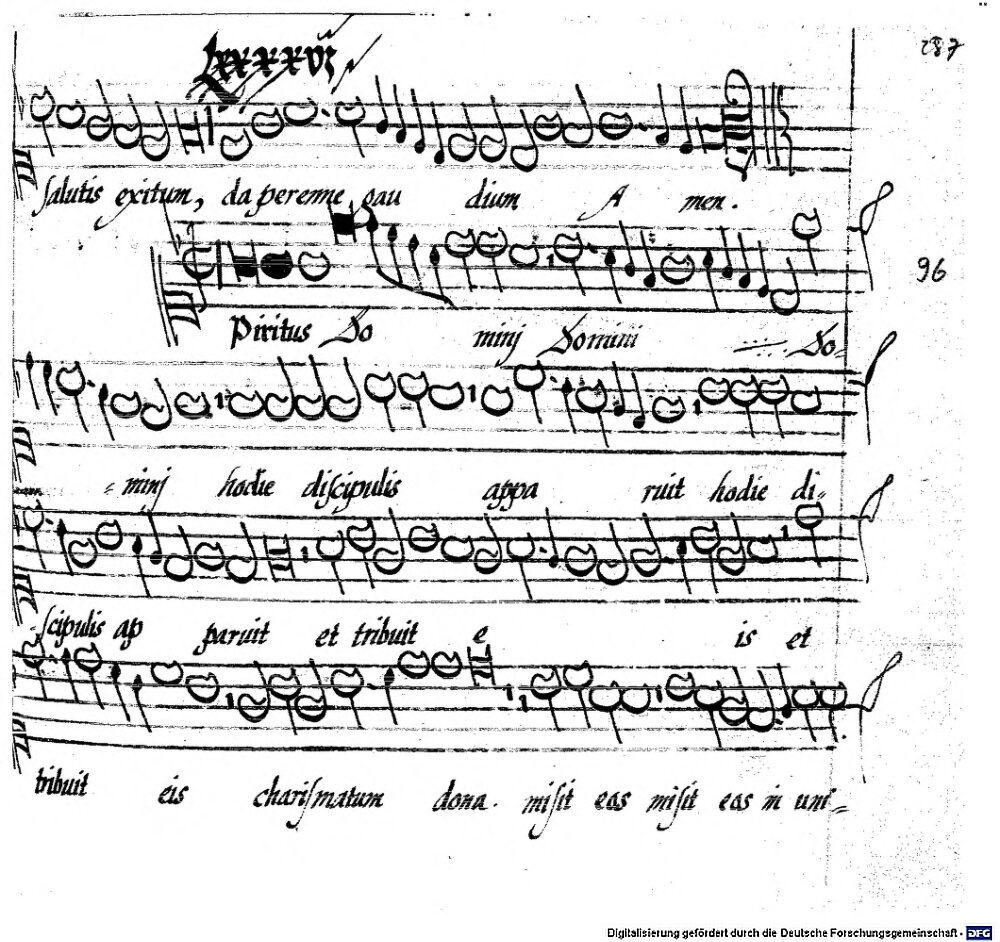 287
Lxxxxvi
salutis exitum, da perenne gau dium A men.
96
Spiritus Do minj Domini Do=
= minj hodie discipulis appa ruit hodie di=
scipulis ap paruit et tribuit e is et
tribuit eis charismatum dona. misit eos misit eos in uni=
Digitalisierung gefördert durch die Deutsche Forschungsgemeinschaft - DFG